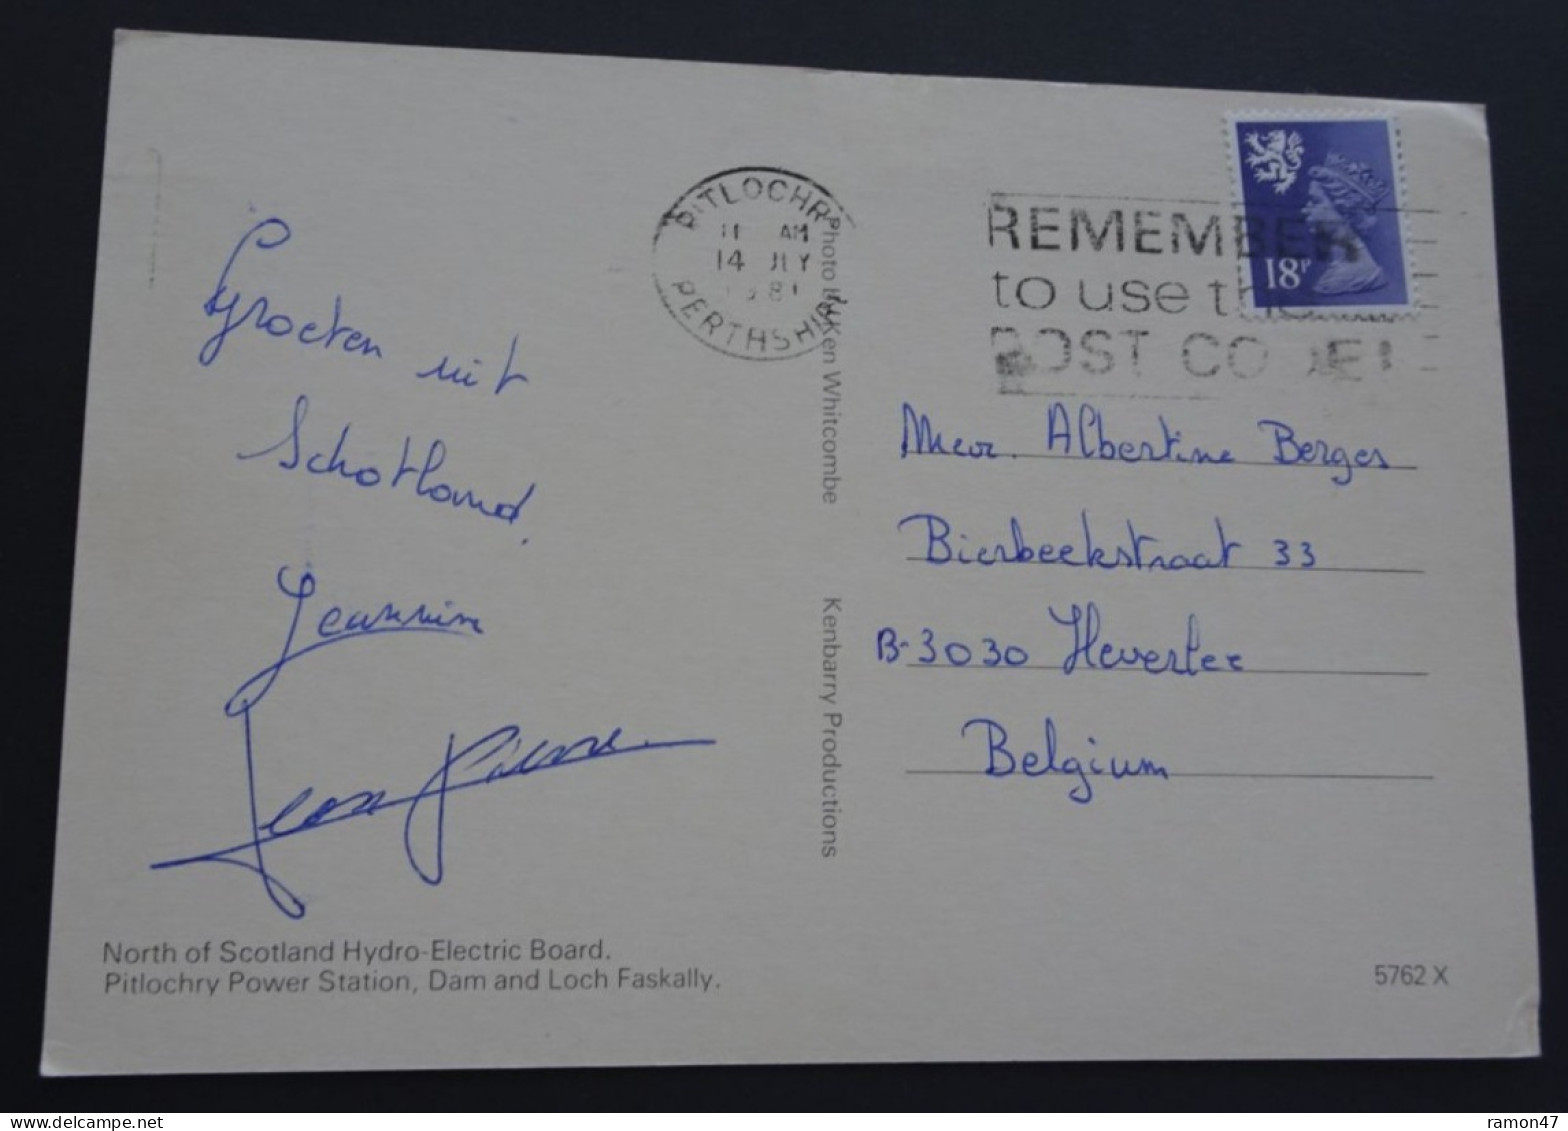 Groeten uit
Schotland.
Jeannine
Jean Pierre
North of Scotland Hydro-Electric Board.
Pitlochry Power Station, Dam and Loch Faskally.
PITLOCHRY
11 AM
14 JLY
1981
PERTHSHIRE
Photo by Ken Whitcombe
Kenbarry Productions
REMEMBER
to use the
POST CODE!
18P
Mevr. Albertine Berges
Bierbeekstraat 33
B-3030 Heverlee
Belgium
5762 X
ramon47